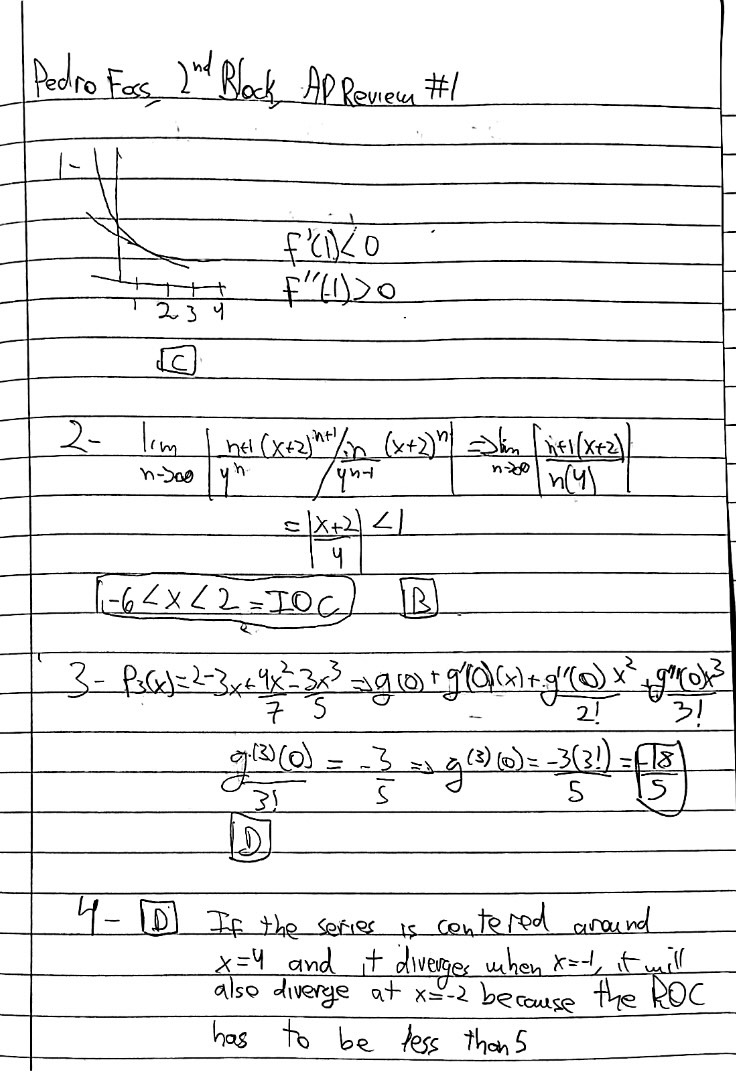 Pedro Foss, 2nd Block, AP Review #1
1-
f'(1)<0
f''(1)>0
1 2 3 4
C
2- lim n->∞ | n+1 (x+2)^n+1 / 4^n / n (x+2)^n / 4^n-1 | => lim n->∞ | n+1(x+2) / n(4) |
= | x+2 / 4 | < 1
-6<x<2 = IOC B
3- P3(x)=2-3x+4x²/7-3x³/5 => g(0)+g'(0)(x)+g''(0)x²/2!+g'''(0)x³/3!
g^(3)(0)/3! = -3/5 => g^(3)(0)= -3(3!)/5 = -18/5
D
4- D If the series is centered around
x=4 and it diverges when x=-1, it will
also diverge at x=-2 because the ROC
has to be less than 5